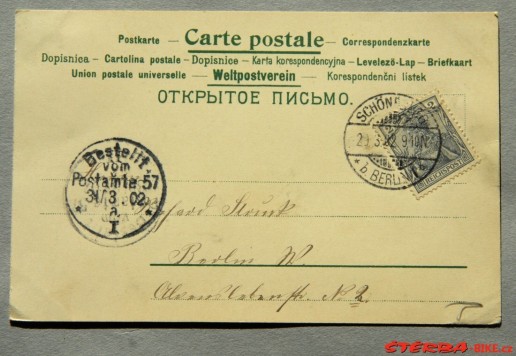 Postkarte – Carte postale – Correspondenzkarte
Dopisnica – Cartolina postale – Dopisnice – Karta korespondencyjna – Levelező-Lap – Briefkaart
Union postale universelle – Weltpostverein – Korespondenční lístek
ОТКРЫТОЕ ПИСЬМО.
SCHÖN
9-10N
b. BERLIN
REICHSPOST
Bestellt
vom
Postamte 57
31/3.02
a
I
Berlin W.
Alvenslebenstr. N. 2
STERBA-BIKE.cz